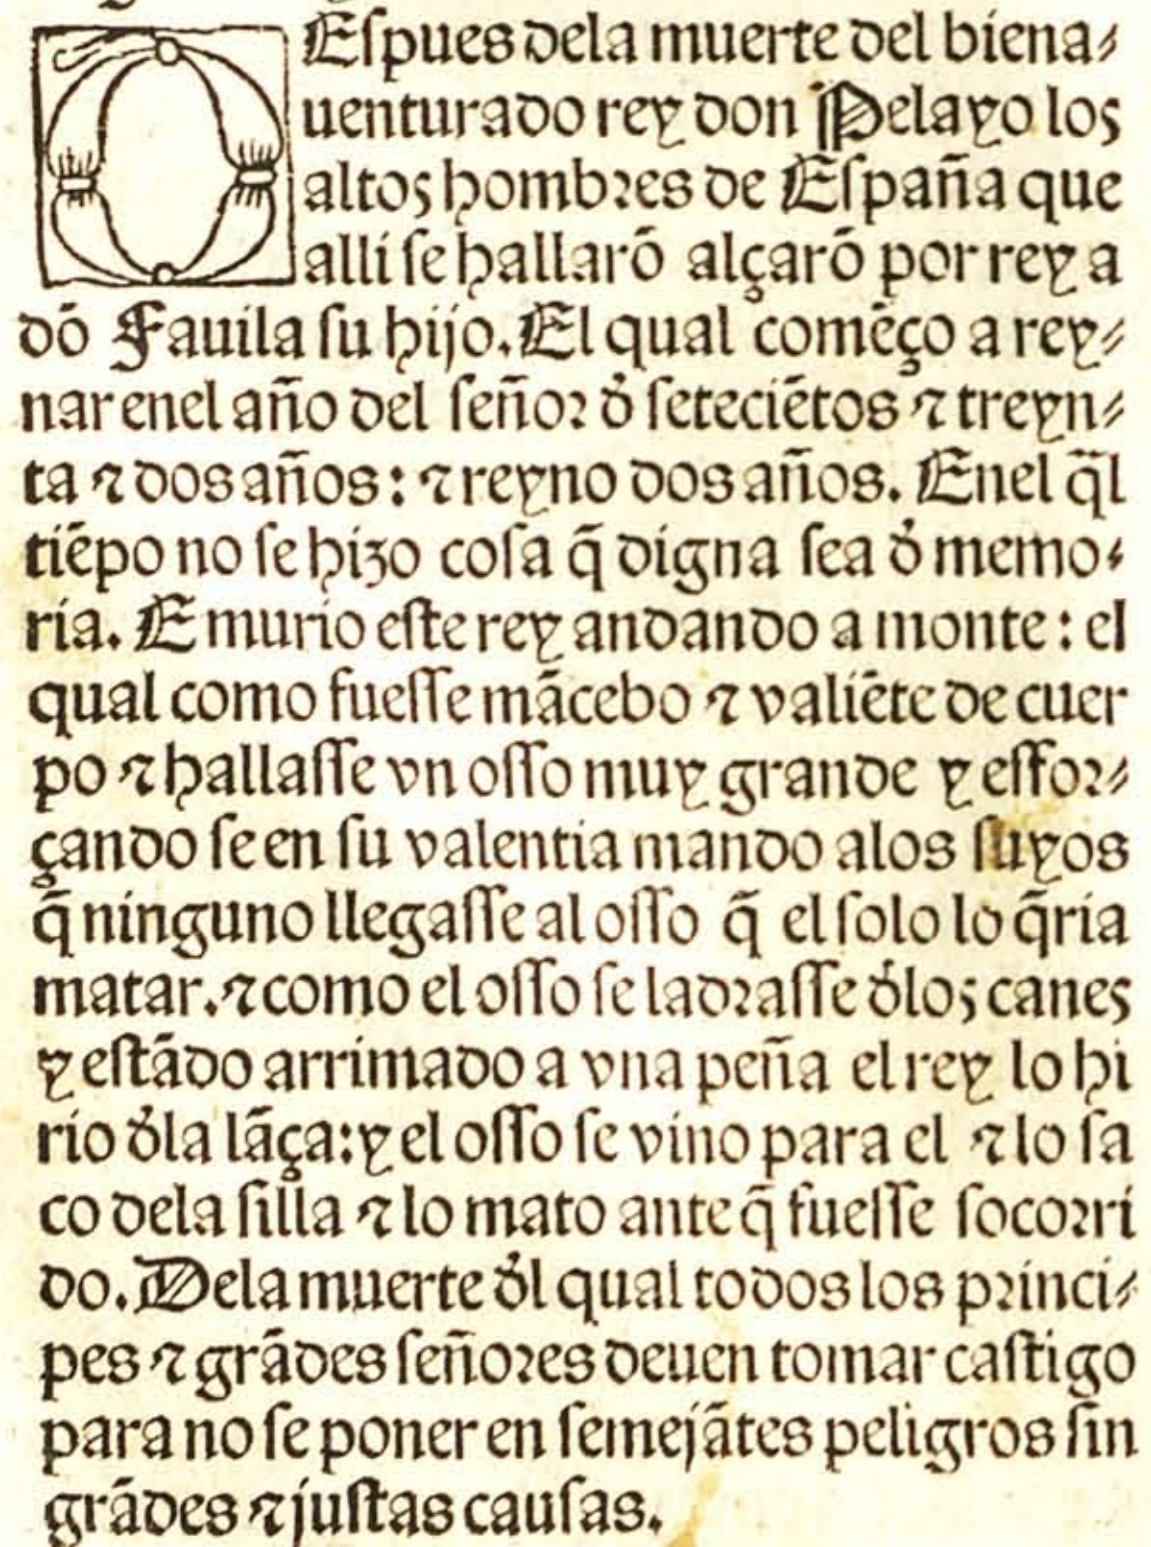 DEſpues dela muerte del biena⸗
uenturado rey don Pelayo los
altos hombꝛes de Eſpaña que
alli ſe hallarõ alçarõ por rey a
dõ Fauila ſu hijo. El qual comẽço a rey⸗
nar enel año del ſeñoꝛ đ ſeteciẽtos ⁊ treyn⸗
ta ⁊ dos años: ⁊ reyno dos años. Enel q̃l
tiẽpo no ſe hizo coſa q̃ digna ſea đ memo⸗
ria. E murio eſte rey andando a monte: el
qual como fueſſe mãcebo ⁊ valiẽte de cuer
po ⁊ hallaſſe vn oſſo muy grande y eſfoꝛ⸗
çando ſe en ſu valentia mando alos ſuyos
q̃ ninguno llegaſſe al oſſo q̃ el ſolo lo q̃ria
matar. ⁊ como el oſſo ſe ladꝛaſſe đlos canes
y eſtãdo arrimado a vna peña el rey lo hi
rio đla lãça: y el oſſo ſe vino para el ⁊ lo ſa
co dela ſilla ⁊ lo mato ante q̃ fueſſe ſocoꝛri
do. Dela muerte đl qual todos los pꝛinci⸗
pes ⁊ grãdes ſeñoꝛes deuen tomar caſtigo
para no ſe poner en ſemejãtes peligros ſin
grãdes ⁊ juſtas cauſas.